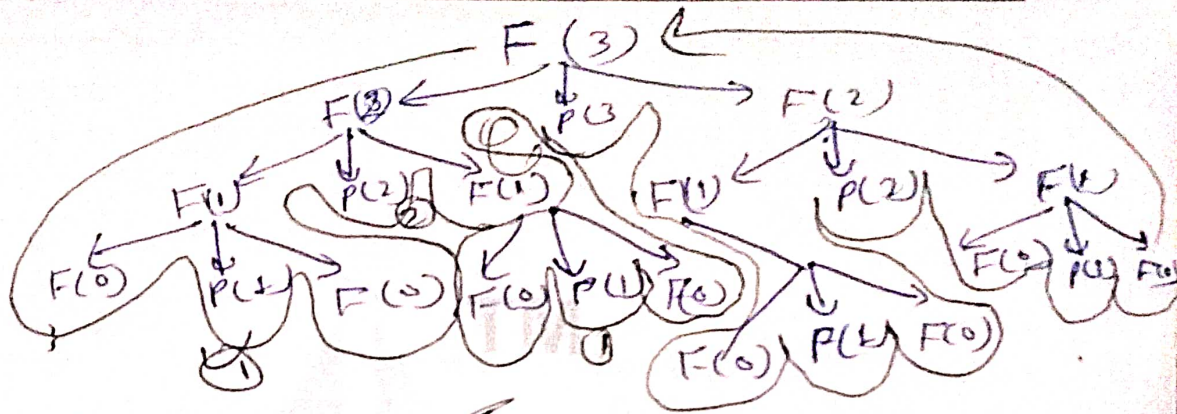 F(3)
F(2) P(3 F(2)
F(1) P(2) F(1) F(1) P(2) F(1
2
F(0) P(1) F(0) F(0) P(1) F(0) F(0) P(1) F(0)
1 1 F(0) P(1) F(0)